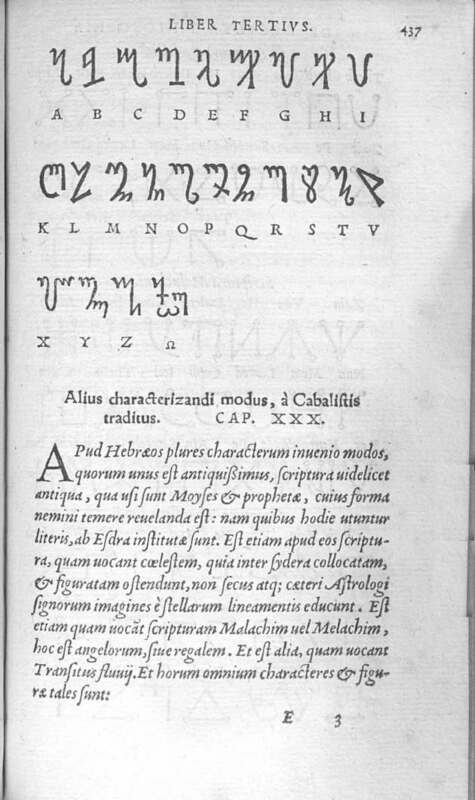 LIBER TERTIVS. 437
A B C D E F G H I
K L M N O P Q R S T V
X Y Z Ω
Alius characterizandi modus, à Cabalistis
traditus. CAP. XXX.
APud Hebræos plures characterum inuenio modos,
quorum unus est antiquißimus, scriptura uidelicet
antiqua, qua usi sunt Moyses & prophetæ, cuius forma
nemini temere reuelanda est: nam quibus hodie utuntur
literis, ab Esdra institutæ sunt. Est etiam apud eos scriptu-
ra, quam uocant cœlestem, quia inter sydera collocatam,
& figuratam ostendunt, non secus atq; cæteri Astrologi
signorum imagines è stellarum lineamentis educunt. Est
etiam quam uocāt scripturam Malachim uel Melachim,
hoc est angelorum, siue regalem. Et est alia, quam uocant
Transitus fluuij. Et horum omnium characteres & figu-
ræ tales sunt:
E 3